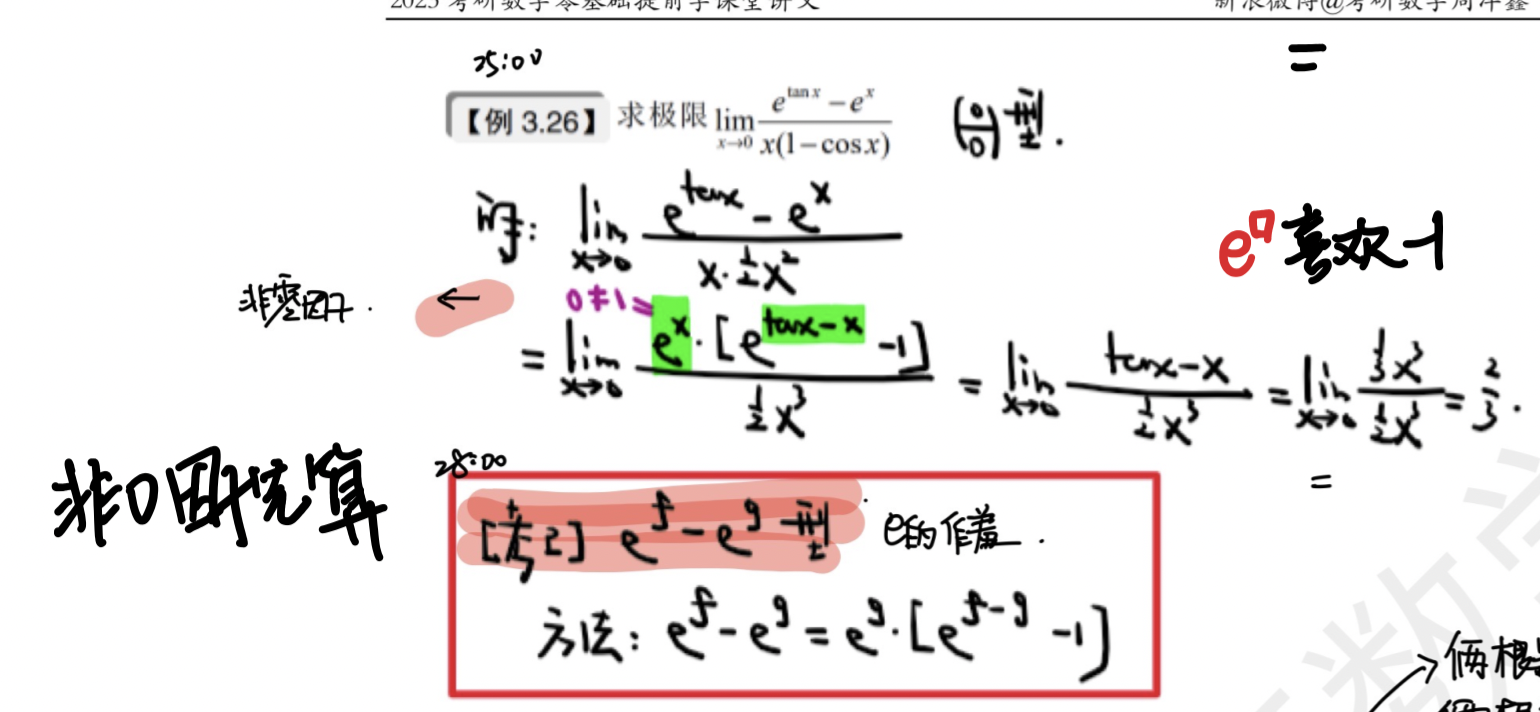 2025 考研数学零基础提前学课堂讲义
新浪微博@考研数学周洋鑫
25:00
=
【例 3.26】 求极限 lim x→0 (e^{tan x} − e^x) / (x(1−cos x)) (0/0)型.
原: lim x→0 (e^{tanx} − e^x) / (x·½x²)
e^□喜欢−1
非零因子.
←
0≠1=
= lim x→0 e^x·[e^{tanx−x} −1] / (½x³) = lim x→0 (tanx−x) / (½x³) = lim x→0 (⅓x³) / (½x³) = 2/3.
=
非0因子先算
28:00
[考2] e^f − e^g 型 e的作差.
方法: e^f − e^g = e^g·[e^{f−g} −1]
数学
→俩根